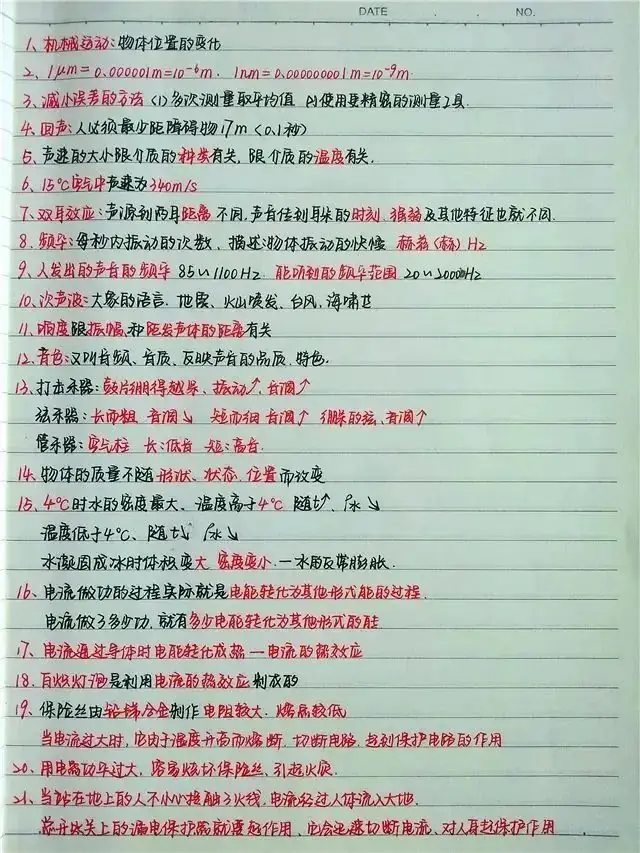 DATE . . NO.
1、机械运动:物体位置的变化
2、1μm=0.000001m=10⁻⁶m. 1nm=0.000000001m=10⁻⁹m.
3、减小误差的方法 (1)多次测量取平均值 (2)使用更精密的测量工具.
4、回声:人必须最少距障碍物17m(0.1秒)
5、声速的大小跟介质的种类有关,跟介质的温度有关.
6、15℃空气中声速为340m/s
7、双耳效应:声源到两耳距离不同,声音传到耳朵的时刻.强弱及其他特征也就不同.
8、频率:每秒内振动的次数、描述物体振动的快慢 赫兹(赫)Hz
9、人发出的声音的频率85~1100Hz.能听到的频率范围20~20000Hz
10、次声波:大象的语言.地震、火山喷发、台风、海啸
11、响度跟振幅和距发声体的距离有关
12、音色:又叫音频、音质、反映声音的品质.特色.
13、打击乐器:鼓片绷得越导、振动↑.音调↑
弦乐器:长而粗 音调↓ 短而细音调↑ 绷紧的弦、音调↑
管乐器:空气柱 长:低音 短:高音.
14、物体的质量不随形状、状态.位置而改变
15、4℃时水的密度最大、温度高于4℃ 随t↑、ρ水↘
温度低于4℃、随t↓ ρ水↘
水凝固成冰时体积变大 密度变小.一水的反常膨胀.
16、电流做功的过程实际就是电能转化为其他形式能的过程.
电流做了多少功.就有多少电能转化为其他形式的能
17、电流通过导体时电能转化成热一电流的热效应
18、白炽灯泡是利用电流的热效应制成的
19、保险丝由铅锑合金制作电阻较大.熔点较低
当电流过大时,它由于温度升高而熔断.切断电路.起到保护电路的作用
20、用电器功率过大,容易烧坏保险丝、引起火灾.
21、当站在地上的人不小心接触了火线,电流经过人体流入大地.
总开关上的漏电保护器就要起作用.它会迅速切断电流、对人身起保护作用